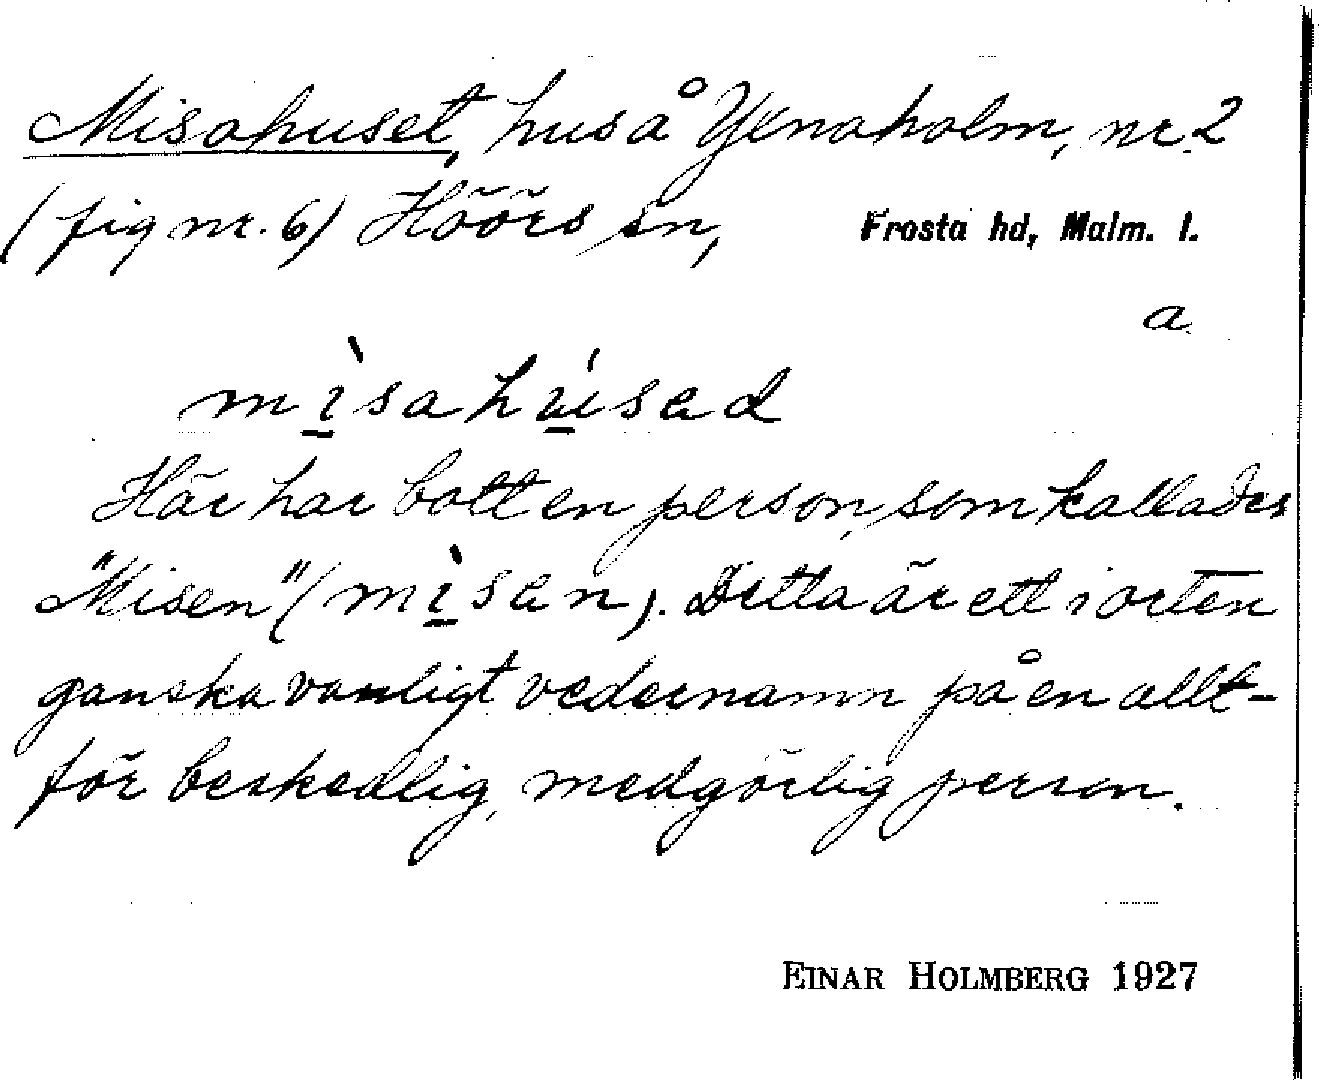 Misahuset, hus å Yxnaholm, nr 2
(fig nr. 6) Höörs sn, Frosta hd, Malm. l.
a
mìsahúsəd
Här har bott en person, som kallades
"Misen" (mìsən). Detta är ett i orten
ganska vanligt vedernamn på en allt-
för beskedlig, medgörlig person.
EINAR HOLMBERG 1927